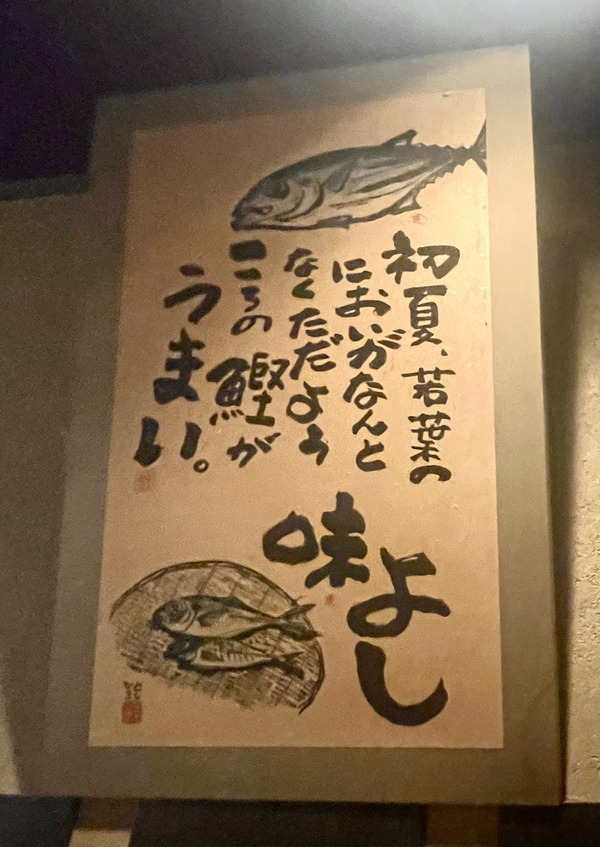 初夏、若葉の
においがなんと
なくただよう
ころの鰹が
うまい。
味よし